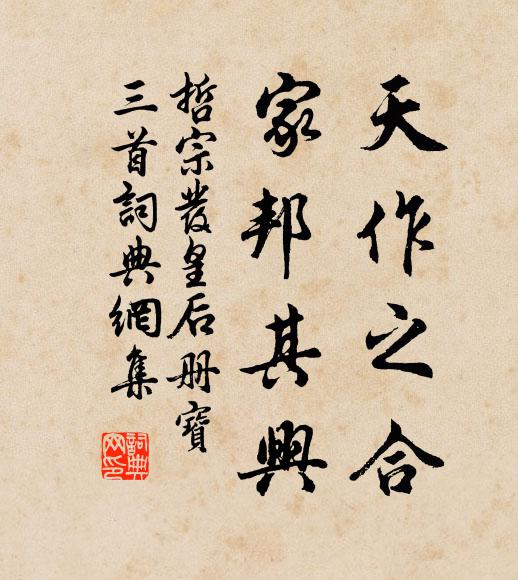 天作之合
家邦其興
哲宗發皇后册寶
三首詞典網集
詞典网印